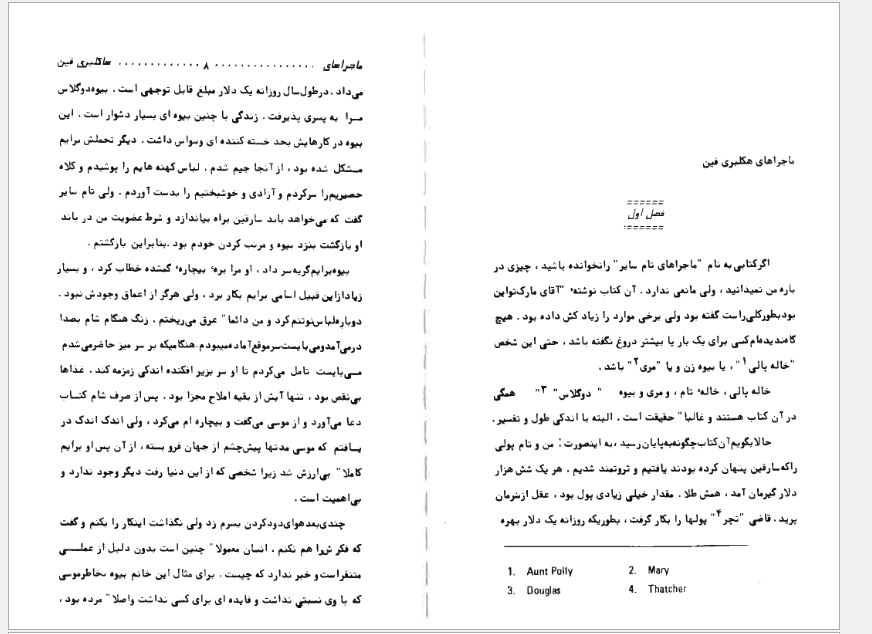 ماجراهای هکلبری فین
======
فصل اول
======
اگر کتابی به نام "ماجراهای تام سایر" را نخوانده باشید ، چیزی در
باره من نمیدانید ، ولی مانعی ندارد . آن کتاب نوشتهٔ "آقای مارک تواین
بود بطور کلی راست گفته بود ولی برخی موارد را زیاد کش داده بود . هیچ
گاه ندیده‌ام کسی برای یک بار یا بیشتر دروغ نگفته باشد ، حتی این شخص
"خاله پالی ۱" ، یا بیوه زن و یا "مری ۲" باشد .
خاله پالی ، خالهٔ تام ، و مری و بیوه " دوگلاس" ۳" همگی
در آن کتاب هستند و غالبا" حقیقت است . البته با اندکی طول و تفسیر .
حالا بگویم آن کتاب چگونه به پایان رسید ، به اینصورت : من و تام پولی
را که سارقین پنهان کرده بودند یافتیم و ثروتمند شدیم . هر یک شش هزار
دلار گیرمان آمد ، همش طلا . مقدار خیلی زیادی پول بود ، عقل از سرمان
پرید . قاضی "تچر ۴" پولها را بکار گرفت ، بطوریکه روزانه یک دلار بهره
1. Aunt Polly 2. Mary
3. Douglas 4. Thatcher
ماجراهای ................ ۸ ............. هاکلبری فین
می‌داد . در طول سال روزانه یک دلار مبلغ قابل توجهی است . بیوه دوگلاس
مرا به پسری پذیرفت . زندگی با چنین بیوه ای بسیار دشوار است . این
بیوه در کارهایش بحد خسته کننده ای وسواس داشت . دیگر تحملش برایم
مشکل شده بود ، از آنجا جیم شدم . لباس کهنه هایم را پوشیدم و کلاه
حصیریم را سر کردم و آزادی و خوشبختیم را بدست آوردم . ولی تام سایر
گفت که می‌خواهد باند سارقین براه بیاندازد و شرط عضویت من در باند
او بازگشت بنزد بیوه و مرتب کردن خودم بود . بنابراین بازگشتم .
بیوه برایم گریه سر داد ، او مرا برهٔ بیچارهٔ گمشده خطاب کرد ، و بسیار
زیاد از این قبیل اسامی برایم بکار برد ، ولی هرگز از اعماق وجودش نبود .
دوباره لباس نو تنم کرد و من دائما" عرق می‌ریختم . زنگ هنگام شام بصدا
در می‌آمد و می‌بایست سر موقع آماده میبودم . هنگامیکه بر سر میز حاضر می‌شدم
می‌بایست تامل می‌کردم تا او سر بزیر افکنده اندکی زمزمه کند . غذاها
بی‌نقص بود ، تنها آبش از بقیه املاح مجزا بود . پس از صرف شام کتاب
دعا می‌آورد و از موسی می‌گفت و بیچاره ام می‌کرد ، ولی اندک اندک در
یافتم که موسی مدتها پیش چشم از جهان فرو بسته ، از آن پس او برایم
کاملا" بی‌ارزش شد زیرا شخصی که از این دنیا رفت دیگر وجود ندارد و
بی‌اهمیت است .
چندی بعد هوای دود کردن بسرم زد ولی نگذاشت اینکار را بکنم و گفت
که فکرش را هم نکنم . انسان معمولا" چنین است بدون دلیل از عملی
متنفر است و خبر ندارد که چیست . برای مثال این خانم بیوه بخاطر موسی
که با وی نسبتی نداشت و فایده ای برای کسی نداشت واصلا" مرده بود ،